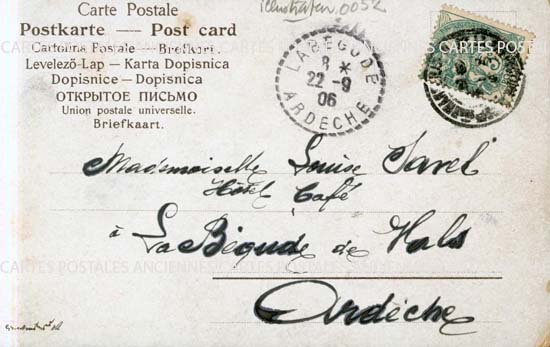 Carte Postale
Postkarte — Post card
Cartolina Postale — Brefkort.
Levelező-Lap — Karta Dopisnica
Dopisnice — Dopisnica
ОТКРЫТОЕ ПИСЬМО
Union postale universelle.
Briefkaart.
0052
LABEGUDE
8 *
22-9
06
ARDECHE
Mademoiselle Louise Javel
Hôtel Café
à La Bégude de Vals
CARTES POSTALES ANCIENNES
Ardèche